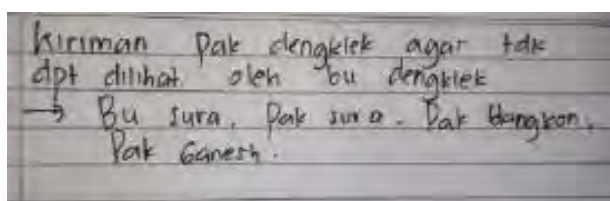 kiriman Pak dengklek agar tdk
dpt dilihat oleh bu dengklek
→ Bu sura, Pak sura. Pak blangkon,
Pak Ganesh.